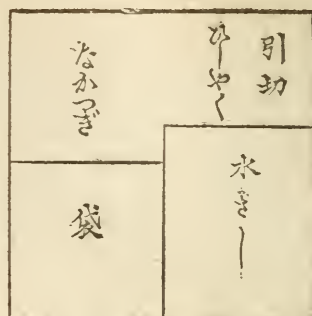 引切
ひしやく
なかつぎ
水さし
袋